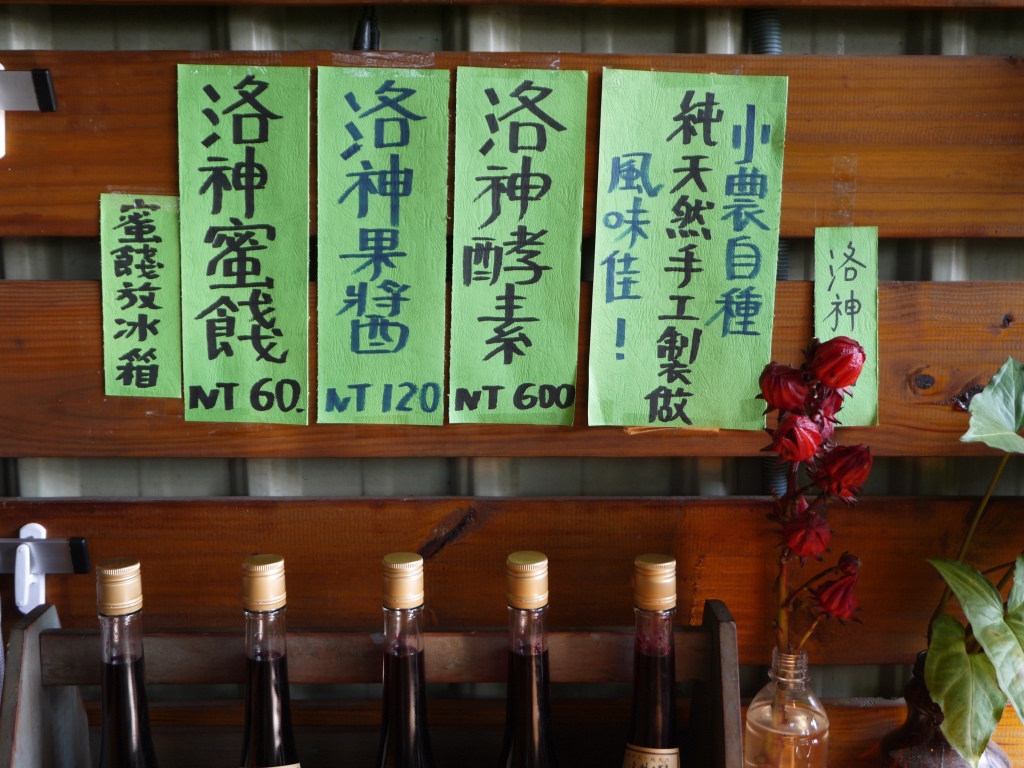 蜜餞放冰箱
洛神蜜餞
NT 60.
洛神果醬
NT 120
洛神酵素
NT 600
小農自種
純天然手工製做
風味佳！
洛神